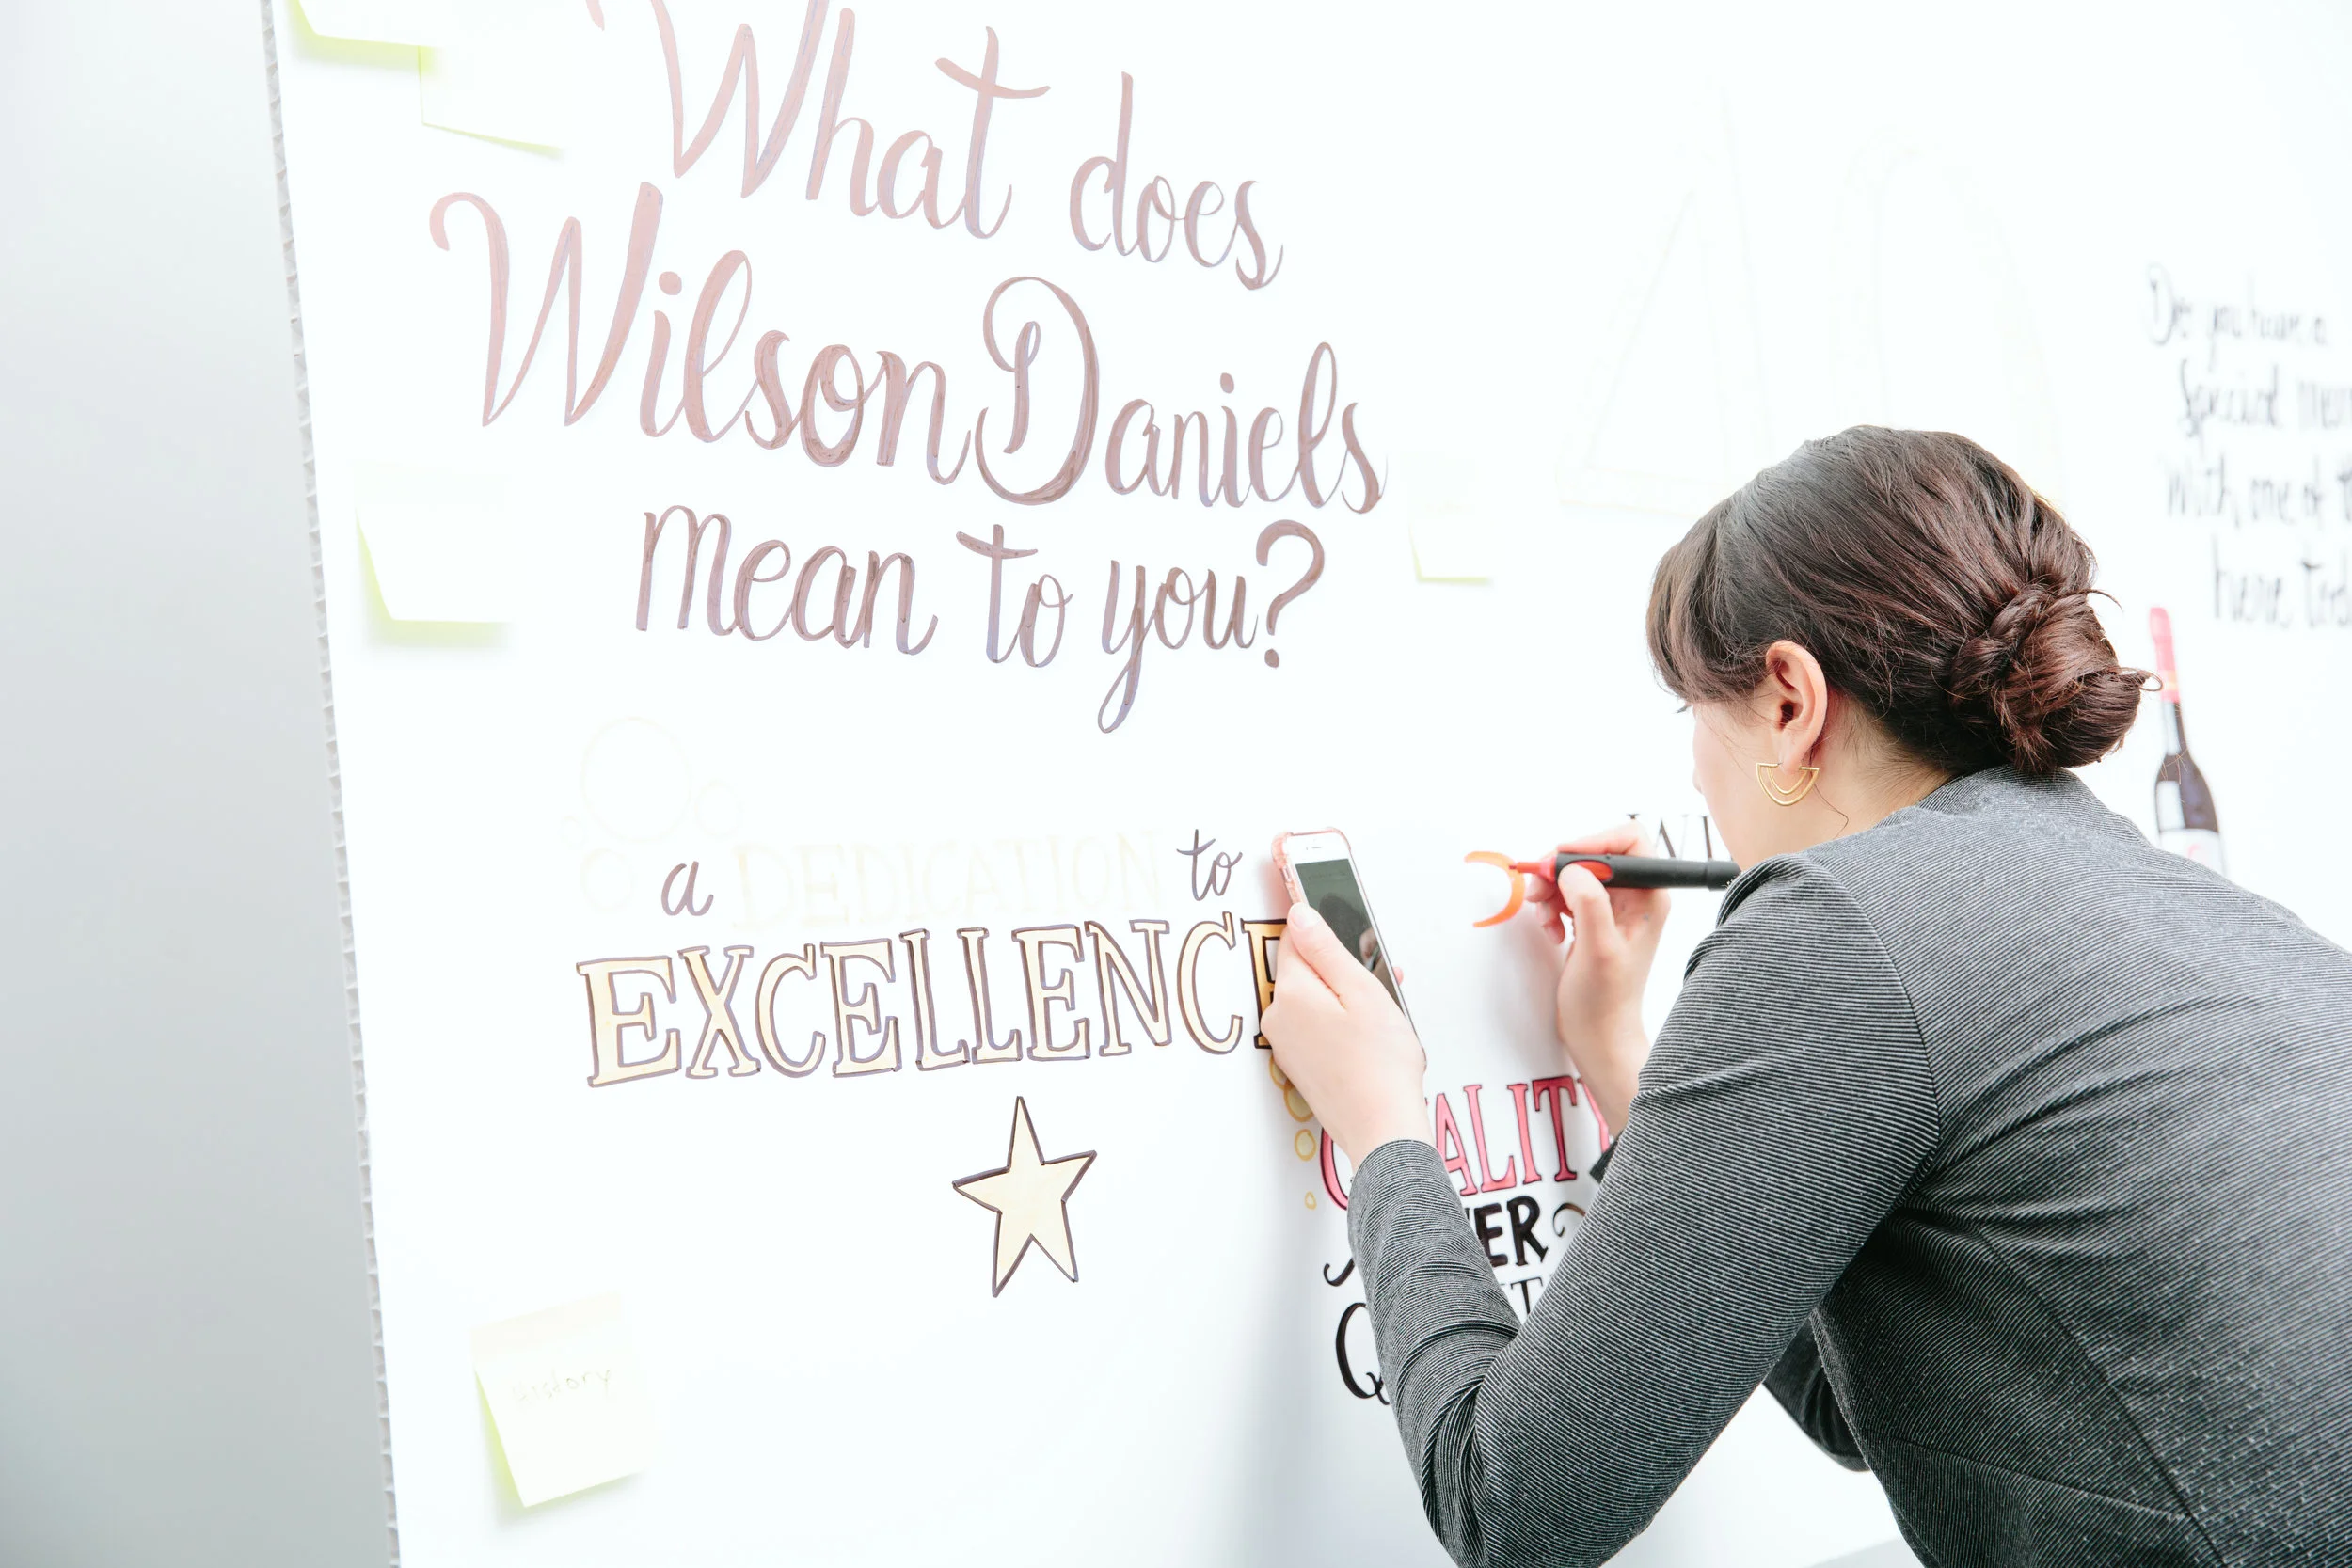 What does
Wilson Daniels
mean to you?
a DEDICATION to
EXCELLENCE
QUALITY
History
Do you have a
Special
with one of
here